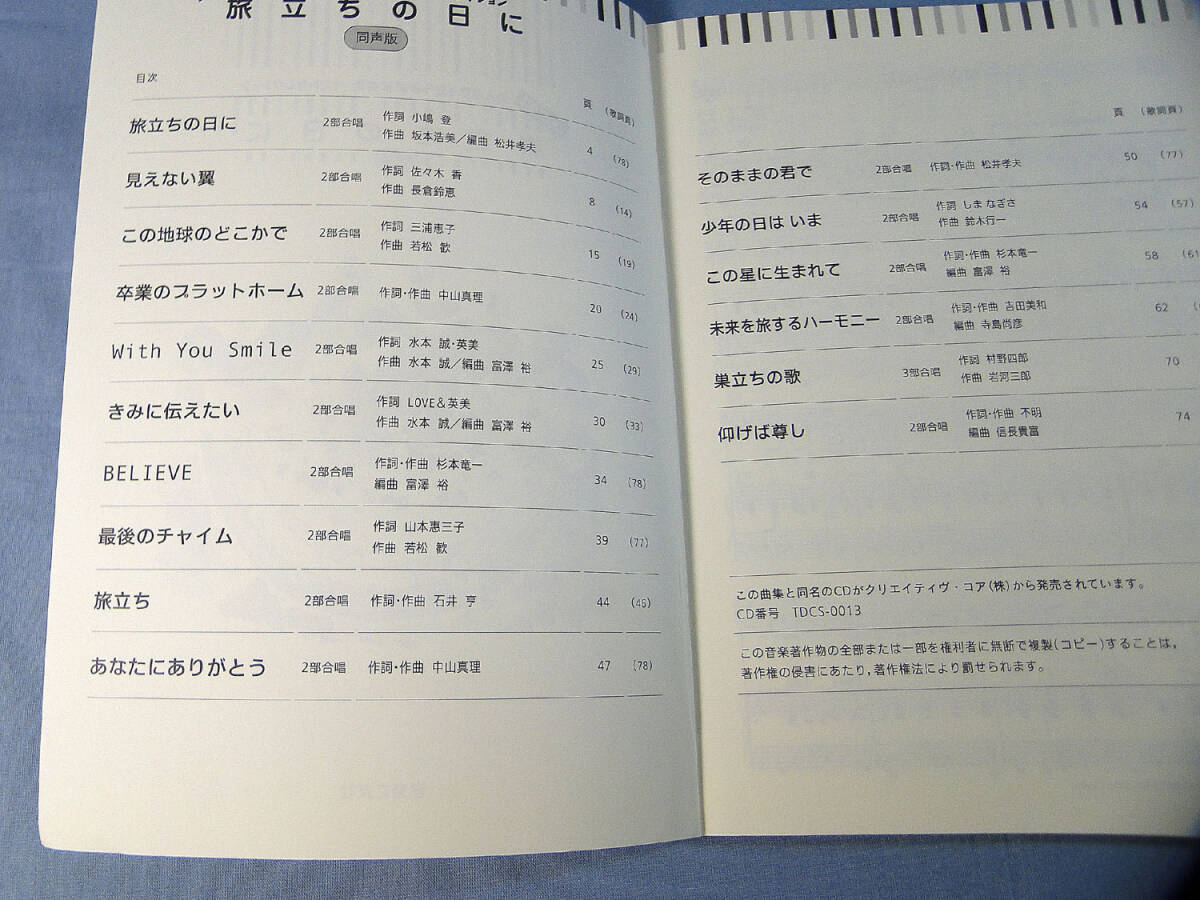 旅立ちの日に
同声版
目次
頁 (歌詞頁)
旅立ちの日に 2部合唱 作詞 小嶋 登
作曲 坂本浩美/編曲 松井孝夫 4 (78)
見えない翼 2部合唱 作詞 佐々木 香
作曲 長倉鈴恵 8 (14)
この地球のどこかで 2部合唱 作詞 三浦恵子
作曲 若松 歓 15 (19)
卒業のプラットホーム 2部合唱 作詞・作曲 中山真理 20 (24)
With You Smile 2部合唱 作詞 水本 誠・英美
作曲 水本 誠/編曲 富澤 裕 25 (29)
きみに伝えたい 2部合唱 作詞 LOVE&英美
作曲 水本 誠/編曲 富澤 裕 30 (33)
BELIEVE 2部合唱 作詞・作曲 杉本竜一
編曲 富澤 裕 34 (78)
最後のチャイム 2部合唱 作詞 山本惠三子
作曲 若松 歓 39 (77)
旅立ち 2部合唱 作詞・作曲 石井 亨 44 (46)
あなたにありがとう 2部合唱 作詞・作曲 中山真理 47 (78)
頁 (歌詞頁)
そのままの君で 2部合唱 作詞・作曲 松井孝夫 50 (77)
少年の日は いま 2部合唱 作詞 しま なぎさ
作曲 鈴木行一 54 (57)
この星に生まれて 2部合唱 作詞・作曲 杉本竜一
編曲 富澤 裕 58 (61
未来を旅するハーモニー 2部合唱 作詞・作曲 吉田美和
編曲 寺島尚彦 62
巣立ちの歌 3部合唱 作詞 村野四郎
作曲 岩河三郎 70
仰げば尊し 2部合唱 作詞・作曲 不明
編曲 信長貴富 74
この曲集と同名のCDがクリエイティヴ・コア(株)から発売されています。
CD番号 TDCS-0013
この音楽著作物の全部または一部を権利者に無断で複製(コピー)することは,
著作権の侵害にあたり,著作権法により罰せられます。